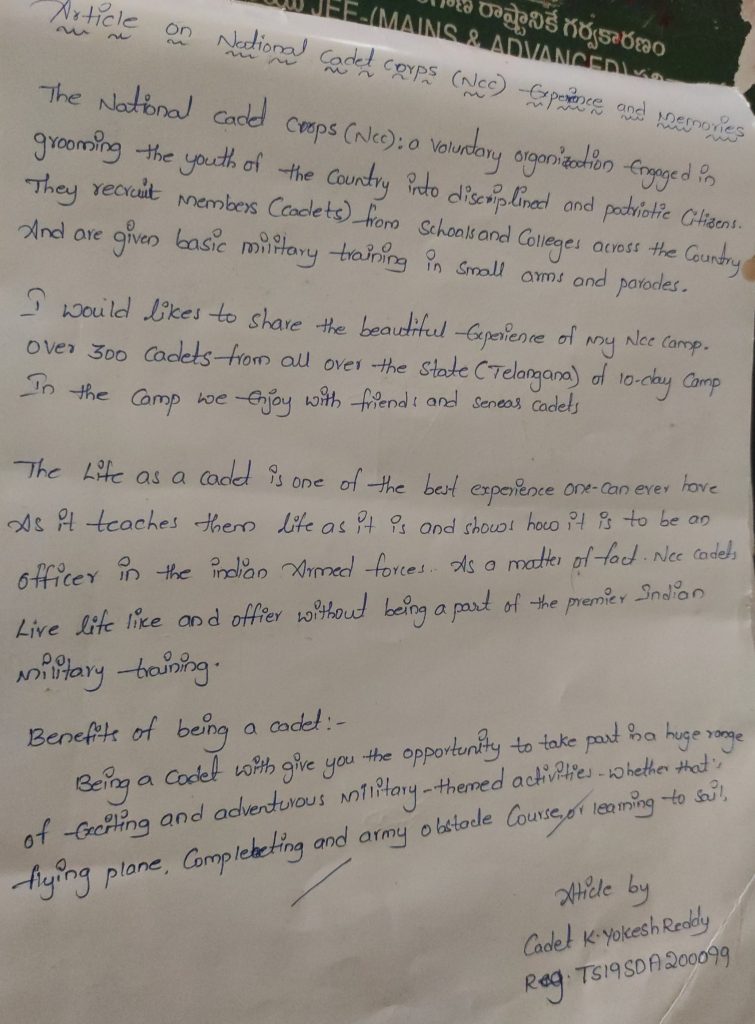 రాష్ట్రానికే గర్వకారణం
JEE-(MAINS & ADVANCED)
Article on National Cadet Corps (Ncc) Experience and Memories
The National cadet corps (Ncc); a voluntary organization Engaged in
grooming the youth of the Country into disciplined and patriotic Citizens.
They recruit Members (cadets) from Schools and Colleges across the Country
And are given basic military training in small arms and parades.
I would likes to share the beautiful Experience of my Ncc Camp.
over 300 cadets from all over the State (Telangana) of 10-day Camp
In the Camp we Enjoy with friends and seneas cadets
The Life as a cadet is one of the best experience one-can ever have
As it teaches them life as it is and shows how it is to be an
officer in the indian Armed forces.. As a matter of fact. Ncc cadets
Live life like and offier without being a part of the premier Indian
military training.
Benefits of being a cadet:-
Being a Cadet with give you the opportunity to take part in a huge range
of Exciting and adventurous military-themed activities - whether that's
flying plane, Compleketing and army obstacle Course, or learning to sail,
Aticle by
Cadet K. Yokesh Reddy
Reg. TS19SDA200099